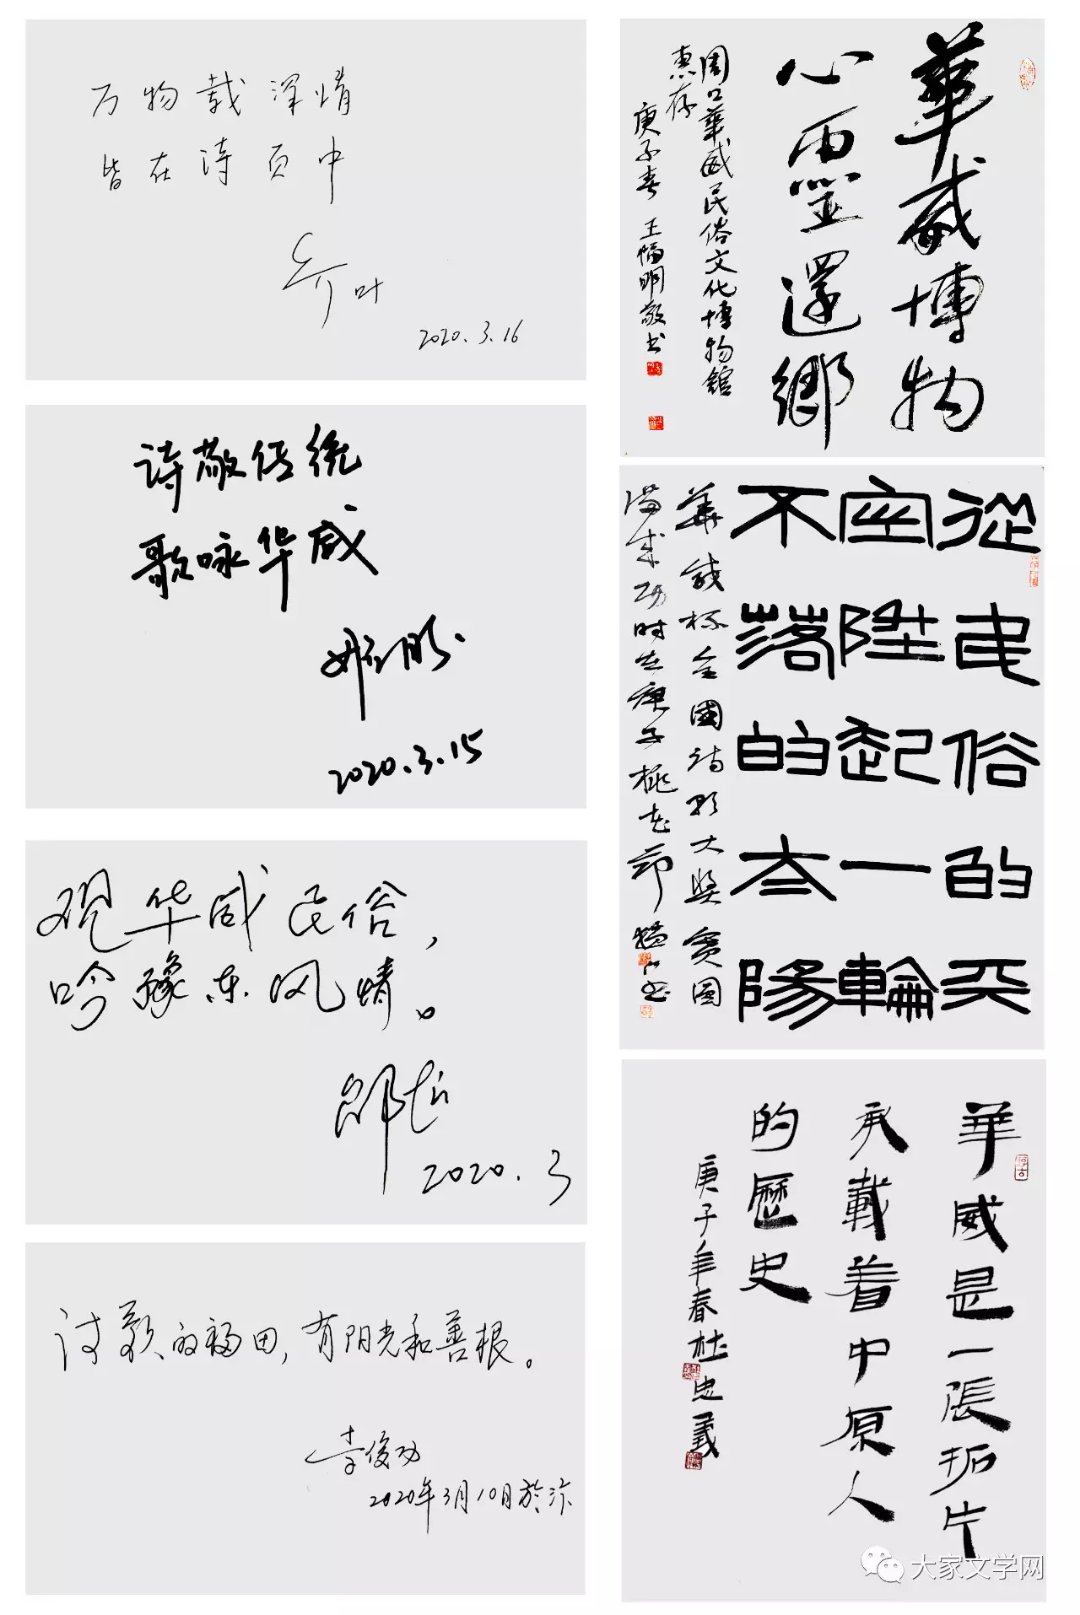 万物载深情
皆在诗页中
乔叶
2020.3.16
诗敬传统
歌咏华威
2020.3.15
观华威民俗，
吟豫东风情。
邵超
2020.3
诗歌的福田，有阳光和善根。
李俊功
2020年3月10日於汴
華威博物
心靈還鄉
周口華威民俗文化博物館
惠存
庚子春 王幅明敬书
從民俗的天
空陞起一輪
不落的太陽
華威杯全國诗歌大獎賽圆
满成功时在庚子桃花节
華威是一張拓片
承載着中原人
的歷史
庚子年春杜忠義
大家文学网